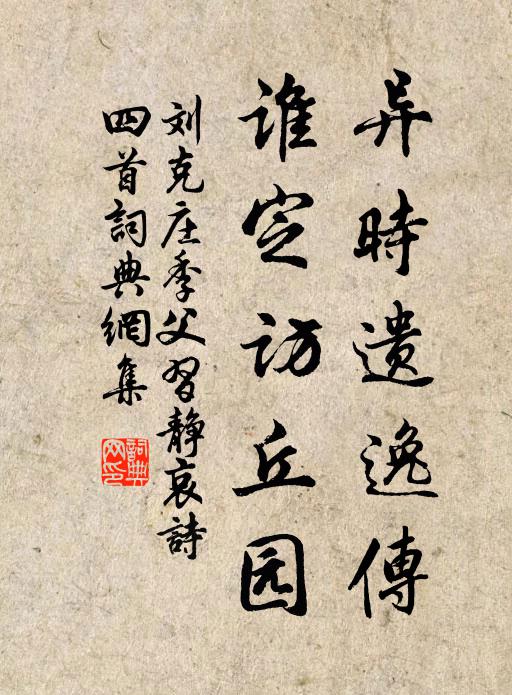 异時遗逸傳
谁定访丘园
刘克庄季父習静哀詩
四首詞典網集
詞典网印